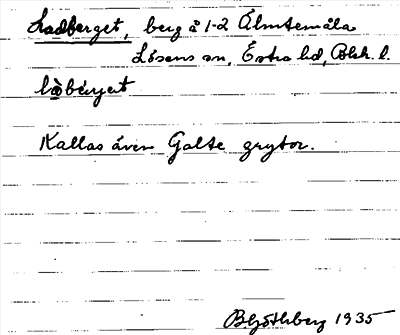 Ladberget, berg å 1-2 Älmtemåla
Lösens sn, Östra hd, Blek. l.
Kallas även Galte grytor.
B Göthberg 1935